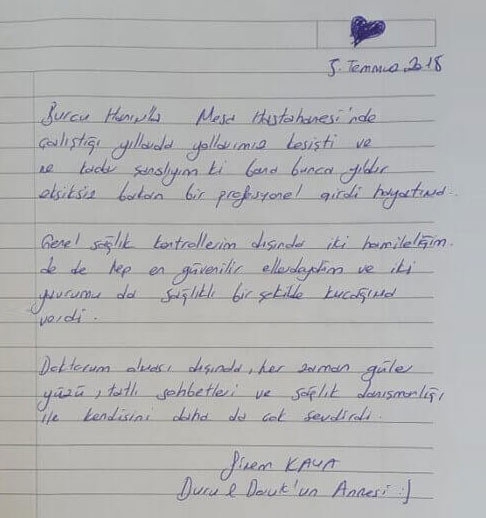 5. Temmuz 2018
Burcu Hanımla Mesa Hastahanesi'nde
çalıştığı yıllarda yollarımız kesişti ve
ne kadar şanslıyım ki bana bunca yıldır
eksiksiz bakan bir profesyonel girdi hayatıma.
Genel sağlık kontrollerim dışında iki hamileliğim.
de de hep en güvenilir ellerdeydim ve iki
yavrumu da sağlıklı bir şekilde kucağıma
verdi.
Doktorum olması dışında, her zaman güler
yüzü, tatlı sohbetleri ve sağlık danışmanlığı
ile kendisini daha da çok sevdirdi.
KAYA
Duru & Doruk'un Annesi :)